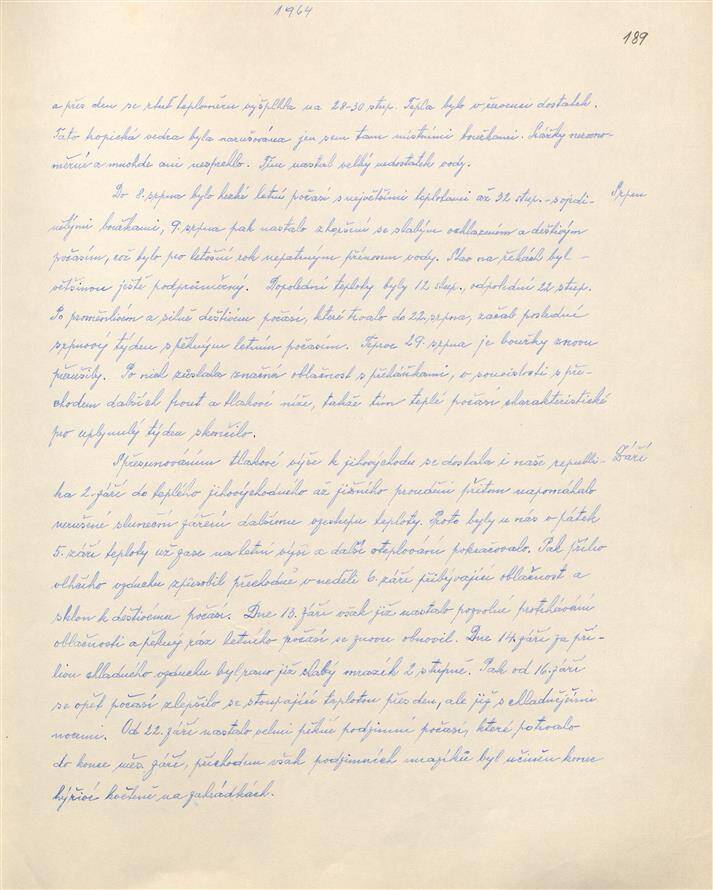 1964
189
a přes den se rtuť teploměru vyšplhla na 28-30 stup. Tepla bylo v červenci dostatek.
Tato tropická vedra byla narušována jen sem tam místními bouřkami. Srážky nerovno-
měrné a mnohde ani nesprchlo. Tím nastal velký nedostatek vody.
Do 8. srpna bylo hezké letní počasí s největšími teplotami až 32 stup. - s ojedi- Srpen
nělými bouřkami, 9. srpna pak nastalo zhoršení se slabým ochlazením a deštivým
počasím, což bylo pro letošní rok nepatrným přínosem vody. Stav na řekách byl -
většinou ještě podprůměrný. Dopolední teploty byly 12 stup., odpolední 22 stup.
Po proměnlivém a silně deštivém počasí, které trvalo do 22. srpna, začal poslední
srpnový týden s pěkným letním počasím. Teprve 29. srpna je bouřky znovu
přerušily. Po nich zůstala značná oblačnost s přeháňkami, v souvislosti s pře-
chodem dalších front a tlakové níže, takže tím teplé počasí charakteristické
pro uplynulý týden skončilo.
Přesunováním tlakové výše k jihovýchodu se dostala i naše republi- Září
ka 2. září do teplého jihovýchodného až jižního proudění. Přitom napomáhalo
nerušené sluneční záření dalšímu vzestupu teploty. Proto byly u nás v pátek
5. září teploty už zase na letní výši a další oteplování pokračovalo. Pak příliv
vlhčího vzduchu způsobil přechodně v neděli 6. září přibývající oblačnost a
sklon k deštivému počasí. Dne 13. září však již nastalo pozvolné protrhávání
oblačnosti a pěkný ráz letního počasí se znovu obnovil. Dne 14. září za pří-
livu chladného vzduchu byl ráno již slabý mrazík 2 stupně. Pak od 16. září
se opět počasí zlepšilo se stoupající teplotou přes den, ale již s chladnějšími
nocemi. Od 22. září nastalo velmi pěkné podzimní počasí, které potrvalo
do konce měs. září, příchodem však podzimních mrazíků byl učiněn konec
hýřivé květeně na zahrádkách.